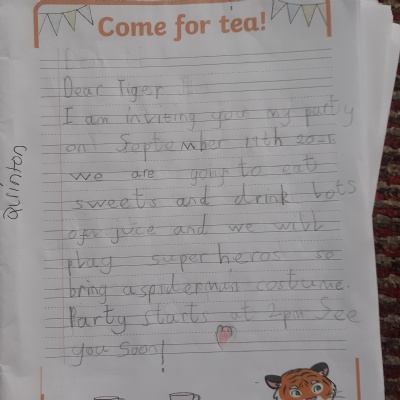 Come for tea!
Dear Tiger
I am inviting you my party
on September 11th
we are going to eat
sweets and drink lots
off juice and we will
play superheros so
bring a spiderman costume.
Party starts at 2pm See
you soon!
Quinton